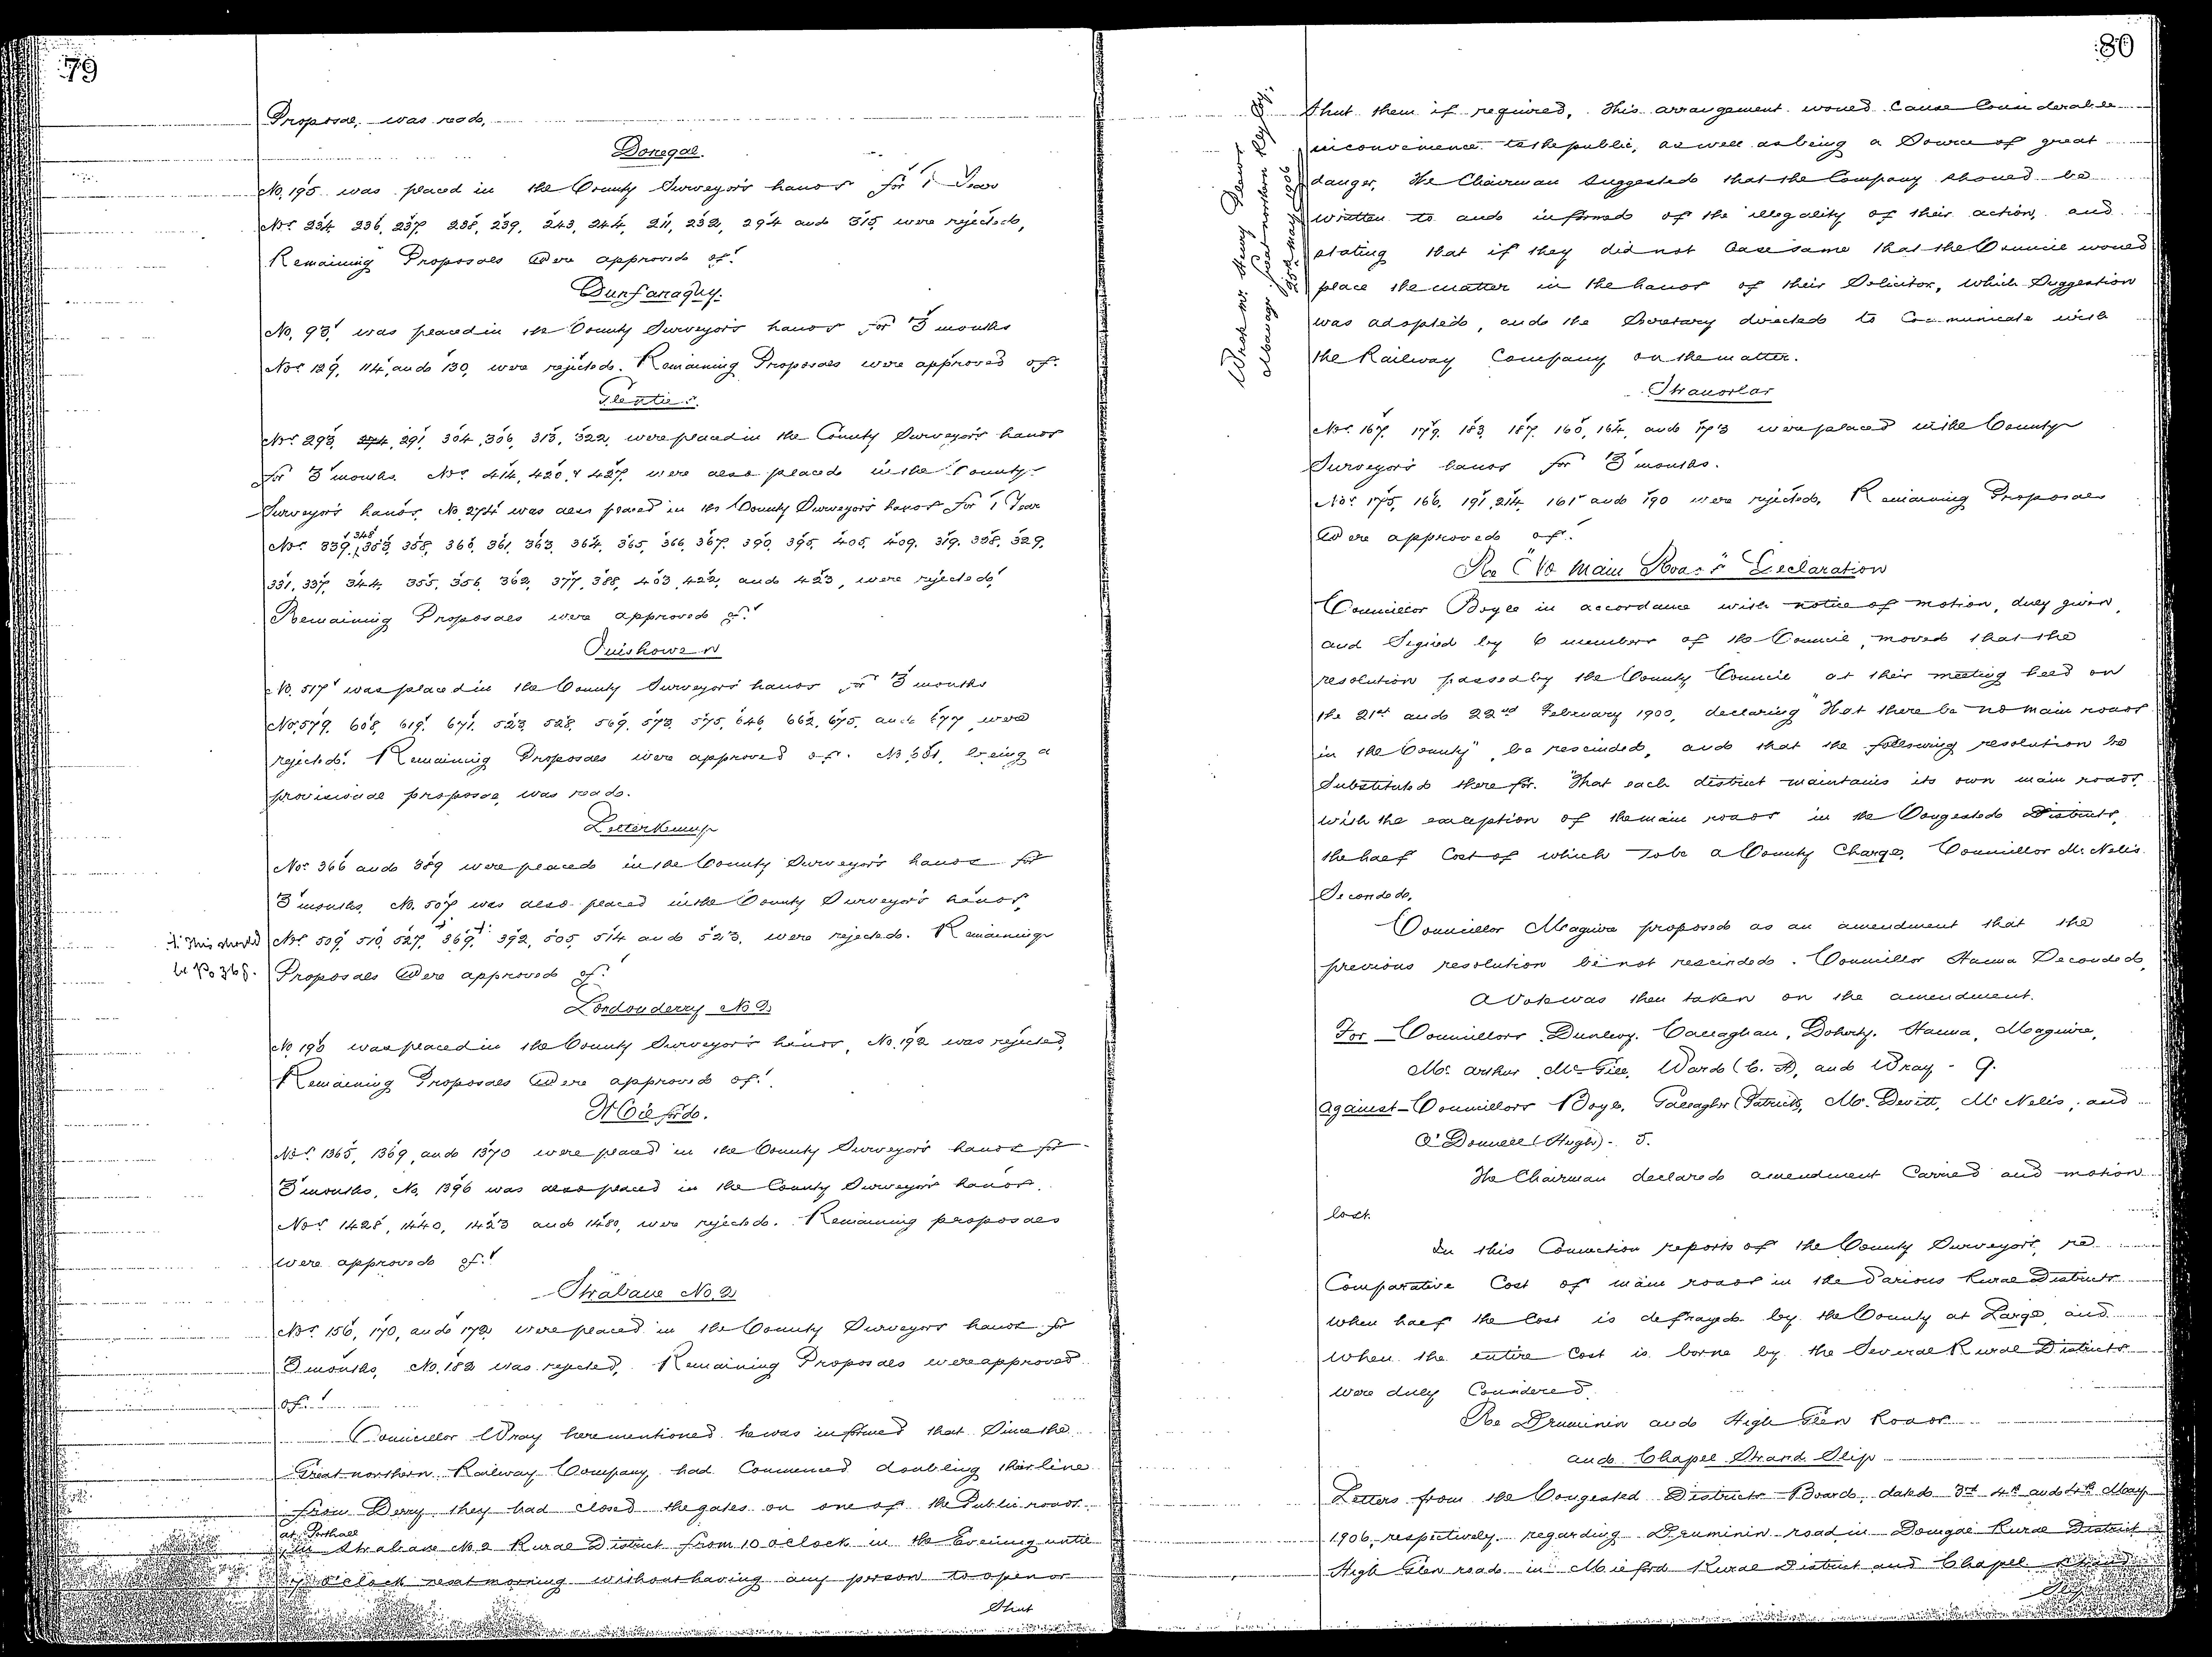 79
Proposal, was read,
Donegal.
No. 195 was placed in the County Surveyor's hands for 1 Year
Nos 234, 236, 237, 238, 239, 243, 244, 211, 232, 294 and 315 were rejected,
Remaining Proposals Were approved of.
Dunfanaghy.
No. 93, was placed in the County Surveyor's hands for 3 months
Nos 129, 114, and 130, were rejected. Remaining Proposals were approved of.
Glenties.
Nos 293, 291, 304, 306, 313, 322, were placed in the County Surveyor's hands
for 3 months. Nos 414, 420, & 427, were also placed in the County
Surveyor's hands, No. 274 was also placed in the County Surveyor's hands for 1 Year
348
Nos 339, 353, 358, 360, 361, 363, 364, 365, 366, 367, 390, 395, 405, 409, 319, 328, 329,
331, 337, 344, 355, 356, 362, 377, 388, 403, 422, and 423, were rejected,
Remaining Proposals were approved of.
Inishowen
No. 517 was placed in the County Surveyor's hands for 3 months
Nos 579, 608, 619, 671, 523, 528, 569, 573, 575, 646, 662, 675, and 677, were
rejected. Remaining Proposals were approved of. No. 581, being a
provisional proposal, was read.
Letterkenny
Nos 366 and 389 were placed in the County Surveyor's hands for
3 months, No. 507 was also placed in the County Surveyor's hands,
+ This should
be No 368.
Nos 509, 510, 527, 369, + 392, 505, 514 and 523, were rejected. Remaining
Proposals Were approved of.
Londonderry No 2
No. 190 was placed in the County Surveyor's hands, No. 192 was rejected,
Remaining Proposals Were approved of.
Milford.
Nos 1365, 1369, and 1370 were placed in the County Surveyor's hands for
3 months, No. 1396 was also placed in the County Surveyor's hands.
Nos 1428, 1440, 1423 and 1480, were rejected. Remaining proposals
were approved of.
Strabane No. 2
Nos 156, 170, and 172 were placed in the County Surveyor's hands for
3 months, No. 182 was rejected, Remaining Proposals were approved
of.
Councillor Wray here mentioned he was informed that Since the
Great northern Railway Company, had Commenced doubling their line
from Derry they had closed the gates on one of the Public roads
at Porthall
in Strabane No 2 Rural District from 10 o'clock in the Evening until
7 o'clock next morning without having any person to open or
Shut
80
Wrote Mr. Henry Plews
Manager Great northern Rly Coy.
25th May 1906
Shut them if required, This arrangement would Cause Considerable
inconvenience to the public, as well as being a Source of great
danger, The Chairman Suggested that the Company should be
written to and informed of the illegality of their action, and
stating that if they did not Ease same that the Council would
place the matter in the hands of their Solicitor, which Suggestion
was adopted, and the Secretary directed to Communicate with
the Railway Company on the matter.
Stranorlar
Nos 167, 179, 183, 187, 160, 164, and 173 were placed in the County
Surveyor's hands for 3 months.
Nos 175, 166, 191, 214, 161 and 190 were rejected, Remaining Proposals
Were approved of.
Re "No Main Roads" Declaration
Councillor Boyle in accordance with notice of motion, duly given,
and Signed by 6 members of the Council, moved that the
resolution passed by the County Council at their meeting held on
the 21st and 22nd February 1900, declaring "that there be no main roads
in the County", be rescinded, and that the following resolution be
Substituted therefor. "That each district maintains its own main roads,
with the exception of the main roads in the Congested Districts,
the half Cost of which to be a County Charge, Councillor Mc Nelis
Seconded.
Councillor Maguire proposed as an amendment that the
previous resolution be not rescinded. Councillor Hanna Seconded,
A Vote was then taken on the amendment.
For - Councillors Dunlevy, Callaghan, Doherty, Hanna, Maguire,
Mc. Arthur, Mc Gill, Ward (C. A), and Wray - 9.
Against - Councillors Boyle, Gallagher (Patrick), Mc. Devitt, Mc Nelis, and
O'Donnell (Hugh) - 5.
The Chairman declared amendment Carried and motion
lost.
In this Connection reports of the County Surveyors, re
Comparative Cost of main roads in the Various Rural Districts
when half the Cost is defrayed by the County at Large, and
when the entire Cost is borne by the Several Rural Districts
were duly Considered.
Re Druminin and High Glen Roads
and Chapel Strand Slip
Letters from the Congested Districts Board, dated 3rd 4th and 4th May
1906, respectively, regarding Druminin road in Donegal Rural District
High Glen road in Milford Rural District and Chapel Strand
Slip